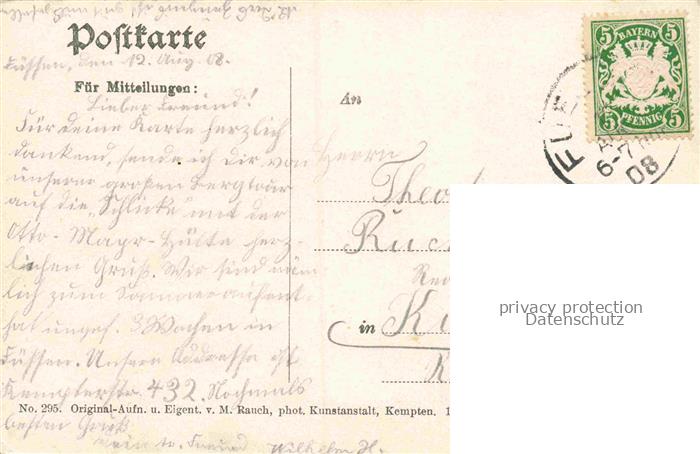 Postkarte
Füssen, den 12. Aug. 08.
Für Mitteilungen:
Lieber Freund!
Für deine Karte herzlich
dankend, sende ich Dir von
unserer großen Bergtour
auf die „Schlicke" mit der
Otto-Mayr-Hütte herz-
lichen Gruß. Wir sind näm-
lich zum Sommeraufent-
hat ungef. 3 Wochen in
Füssen. Unsere Addresse ist
Kempterstr. 432. Nochmals
besten Gruß
dein tr. Freund Wilhelm H.
An
Herrn
Theo
Ruc
in K
BAYERN
5 5
5 5
PFENNIG
FU
6-7
08
privacy protection
Datenschutz
No. 295. Original-Aufn. u. Eigent. v. M. Rauch, phot. Kunstanstalt, Kempten. 1